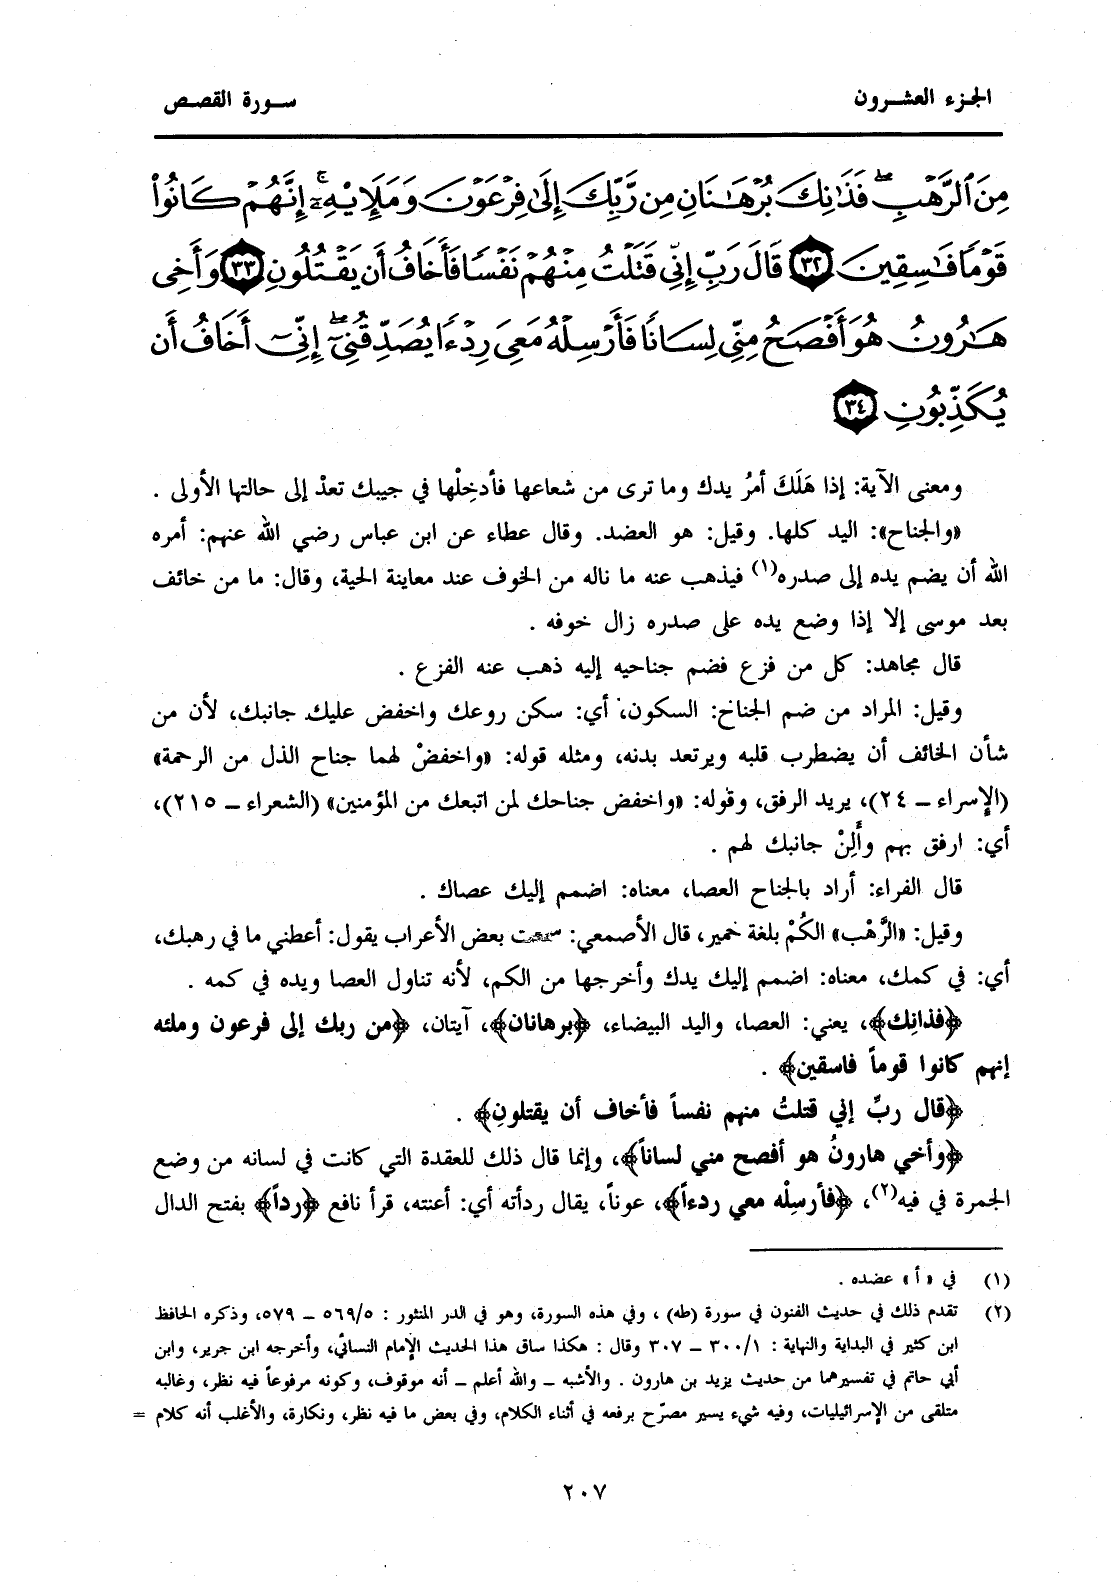 الجزء العشرون
سورة القصص
مِنَ ٱلرَّهْبِ ۖ فَذَٰنِكَ بُرْهَـٰنَانِ مِن رَّبِّكَ إِلَىٰ فِرْعَوْنَ وَمَلَإِي۟هِۦٓ ۚ إِنَّهُمْ كَانُوا۟
قَوْمًا فَـٰسِقِينَ ٣٢ قَالَ رَبِّ إِنِّى قَتَلْتُ مِنْهُمْ نَفْسًا فَأَخَافُ أَن يَقْتُلُونِ ٣٣ وَأَخِى
هَـٰرُونُ هُوَ أَفْصَحُ مِنِّى لِسَانًا فَأَرْسِلْهُ مَعِىَ رِدْءًا يُصَدِّقُنِىٓ ۖ إِنِّىٓ أَخَافُ أَن
يُكَذِّبُونِ ٣٤
ومعنى الآية: إذا هَلَكَ أمرُ يدك وما ترى من شعاعها فأدخِلْها في جيبك تعدْ إلى حالتها الأولى .
«والجناح»: اليد كلها. وقيل: هو العضد. وقال عطاء عن ابن عباس رضي الله عنهم: أمره
الله أن يضم يده إلى صدره(١) فيذهب عنه ما ناله من الخوف عند معاينة الحية، وقال: ما من خائف
بعد موسى إلا إذا وضع يده على صدره زال خوفه .
قال مجاهد: كل من فزع فضم جناحيه إليه ذهب عنه الفزع .
وقيل: المراد من ضم الجناح: السكون، أي: سكن روعك واخفض عليك جانبك، لأن من
شأن الخائف أن يضطرب قلبه ويرتعد بدنه، ومثله قوله: «واخفضْ لهما جناح الذل من الرحمة»
(الإسراء – ٢٤)، يريد الرفق، وقوله: «واخفض جناحك لمن اتبعك من المؤمنين» (الشعراء – ٢١٥)،
أي: ارفق بهم وأَلِنْ جانبك لهم .
قال الفراء: أراد بالجناح العصا، معناه: اضمم إليك عصاك .
وقيل: «الرَّهْب» الكُمْ بلغة حمير، قال الأصمعي: سمعت بعض الأعراب يقول: أعطني ما في رهبك،
أي: في كمك، معناه: اضمم إليك يدك وأخرجها من الكم، لأنه تناول العصا ويده في كمه .
﴿فذانِك﴾، يعني: العصا، واليد البيضاء، ﴿برهانان﴾، آيتان، ﴿من ربك إلى فرعون وملئه
إنهم كانوا قوماً فاسقين﴾ .
﴿قال ربِّ إني قتلتُ منهم نفساً فأخاف أن يقتلونِ﴾ .
﴿وأخي هارونُ هو أفصح مني لساناً﴾، وإنما قال ذلك للعقدة التي كانت في لسانه من وضع
الجمرة في فيه(٢)، ﴿فأرسِلْه معي ردءاً﴾، عوناً، يقال ردأته أي: أعنته، قرأ نافع ﴿رداً﴾ بفتح الدال
(١) في «أ» عضده .
(٢) تقدم ذلك في حديث الفتون في سورة (طه) ، وفي هذه السورة، وهو في الدر المنثور : ٥٦٩/٥ – ٥٧٩، وذكره الحافظ
ابن كثير في البداية والنهاية : ٣٠٠/١ – ٣٠٧ وقال : هكذا ساق هذا الحديث الإمام النسائي، وأخرجه ابن جرير، وابن
أبي حاتم في تفسيرهما من حديث يزيد بن هارون . والأشبه – والله أعلم – أنه موقوف، وكونه مرفوعاً فيه نظر، وغالبه
متلقى من الإسرائيليات، وفيه شيء يسير مصرّح برفعه في أثناء الكلام، وفي بعض ما فيه نظر، ونكارة، والأغلب أنه كلام =
٢٠٧